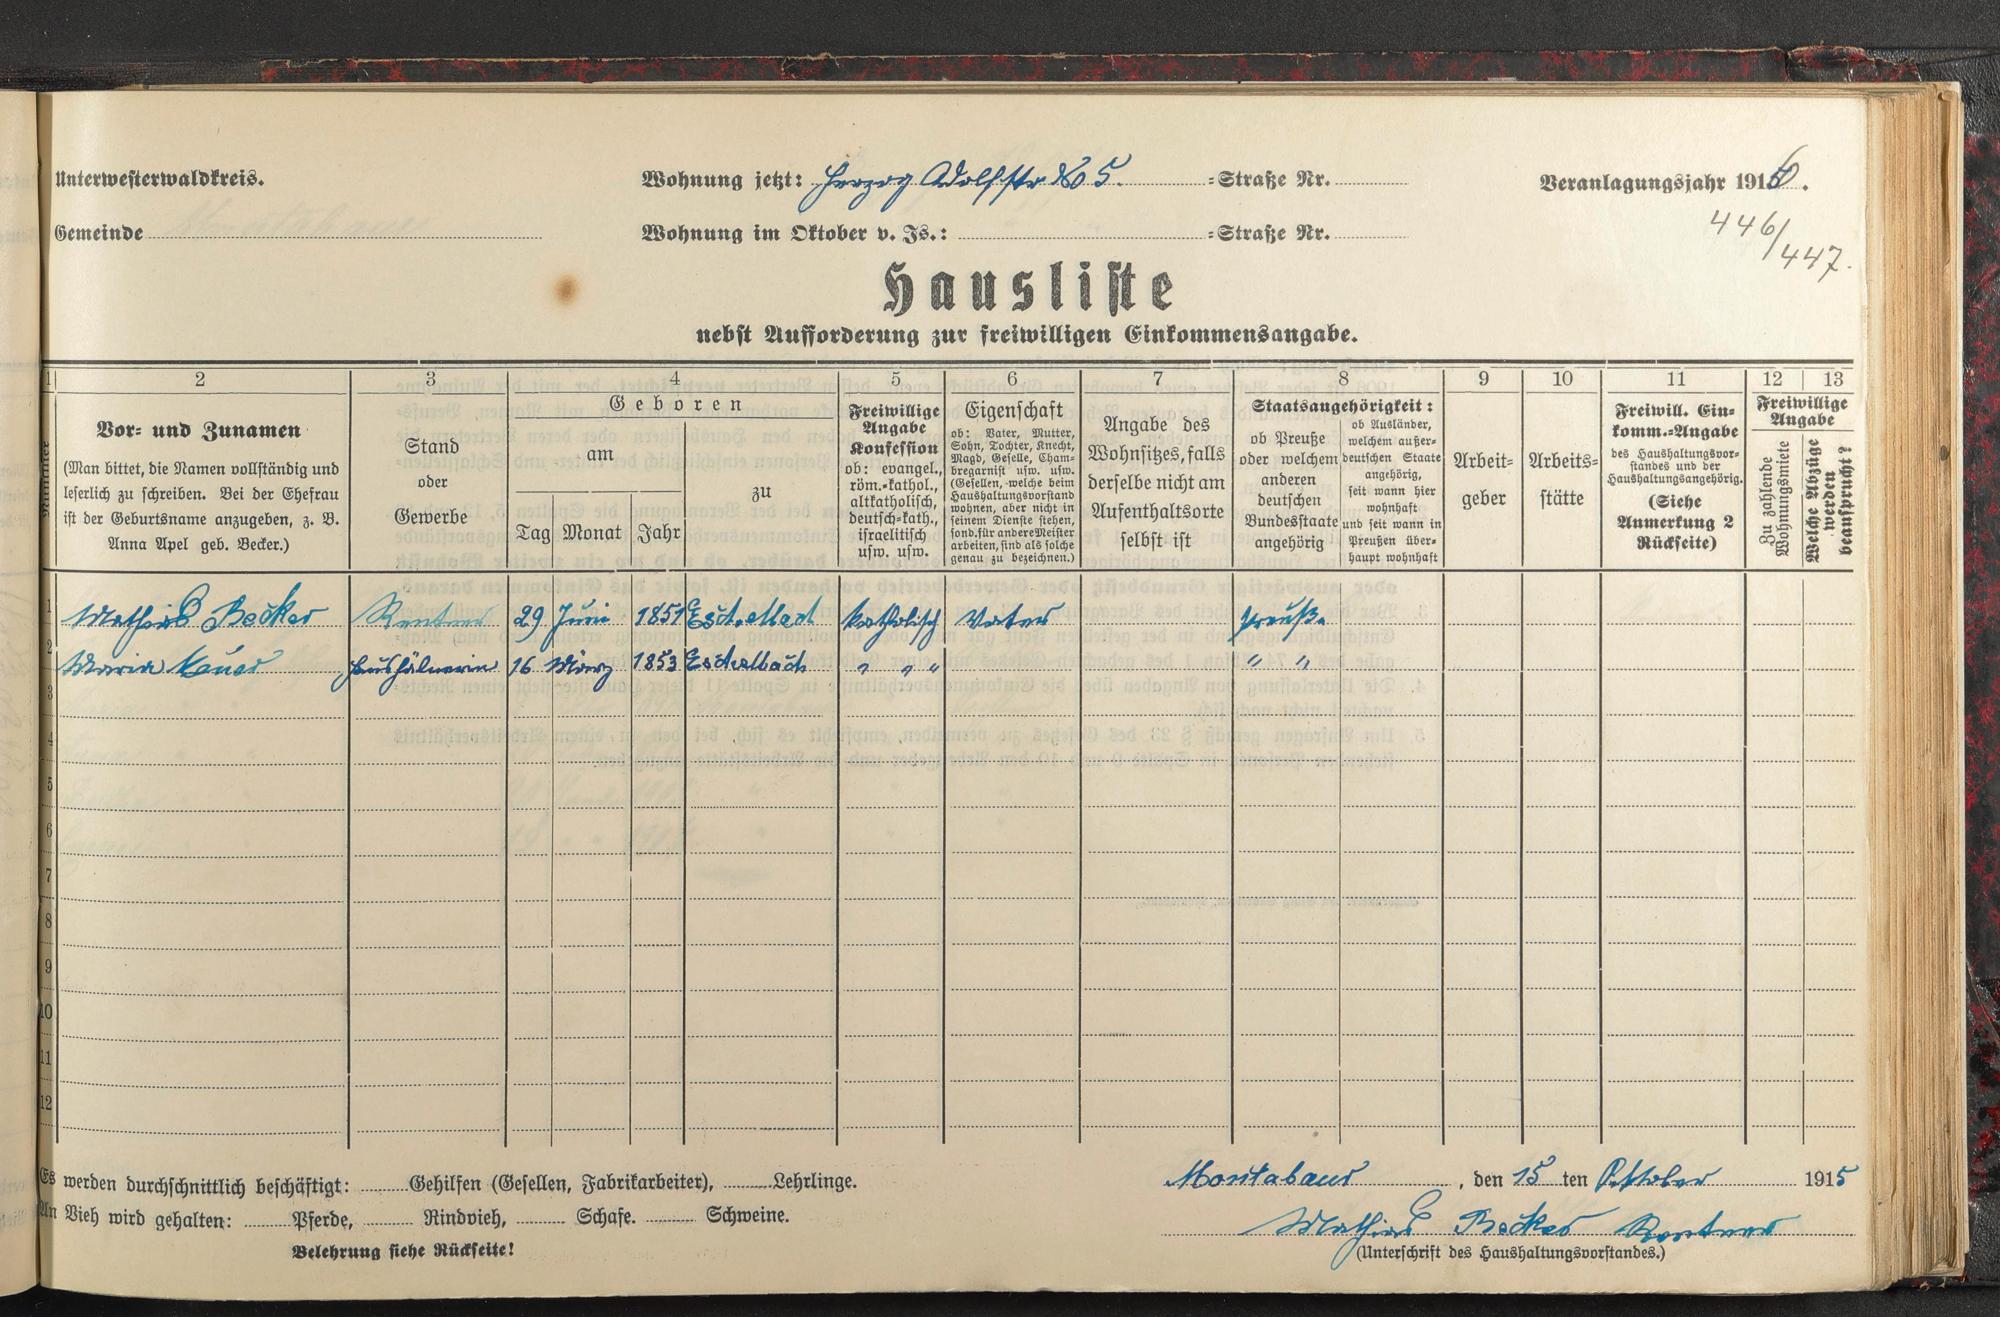 Unterwesterwaldkreis.
Wohnung jetzt: Herzog Adolfstr No 5. =Straße Nr.
Veranlagungsjahr 1916.
Gemeinde
Wohnung im Oktober v. Js.: =Straße Nr.
446/447.
Hausliste
nebst Aufforderung zur freiwilligen Einkommensangabe.
1 2 3 4 5 6 7 8 9 10 11 12 13
Nummer
Vor= und Zunamen
(Man bittet, die Namen vollständig und
leserlich zu schreiben. Bei der Ehefrau
ist der Geburtsname anzugeben, z. B.
Anna Apel geb. Becker.)
Stand
oder
Gewerbe
Geboren
am
Tag Monat Jahr
zu
Freiwillige
Angabe
Konfession
ob: evangel.,
röm.=kathol.,
altkatholisch,
deutsch=kath.,
israelitisch
usw. usw.
Eigenschaft
ob: Vater, Mutter,
Sohn, Tochter, Knecht,
Magd, Geselle, Cham-
bregarnist usw. usw.
(Gesellen, welche beim
Haushaltungsvorstand
wohnen, aber nicht in
seinem Dienste stehen,
sond. für andere Meister
arbeiten, sind als solche
genau zu bezeichnen.)
Angabe des
Wohnsitzes, falls
derselbe nicht am
Aufenthaltsorte
selbst ist
Staatsangehörigkeit:
ob Preuße
oder welchem
anderen
deutschen
Bundesstaate
angehörig
ob Ausländer,
welchem außer-
deutschen Staate
angehörig,
seit wann hier
wohnhaft
und seit wann in
Preußen über-
haupt wohnhaft
Arbeit=
geber
Arbeits=
stätte
Freiwill. Ein=
komm.=Angabe
des Haushaltungsvor-
standes und der
Haushaltungsangehörig.
(Siehe
Anmerkung 2
Rückseite)
Freiwillige
Angabe
Zu zahlende
Wohnungsmiete
Welche Abzüge
werden
beansprucht?
1 Mathias Becker Rentner 29 Juni 1851 Eschelbach katholisch Vater Preuße
2 Maria Kauer Haushälnerin 16 März 1853 Eschelbach " " " " "
3
4
5
6
7
8
9
10
11
12
Es werden durchschnittlich beschäftigt: Gehilfen (Gesellen, Fabrikarbeiter), Lehrlinge.
An Vieh wird gehalten: Pferde, Rindvieh, Schafe. Schweine.
Belehrung siehe Rückseite!
Montabaur, den 15 ten Oktober 1915
Mathias Becker Rentner
(Unterschrift des Haushaltungsvorstandes.)